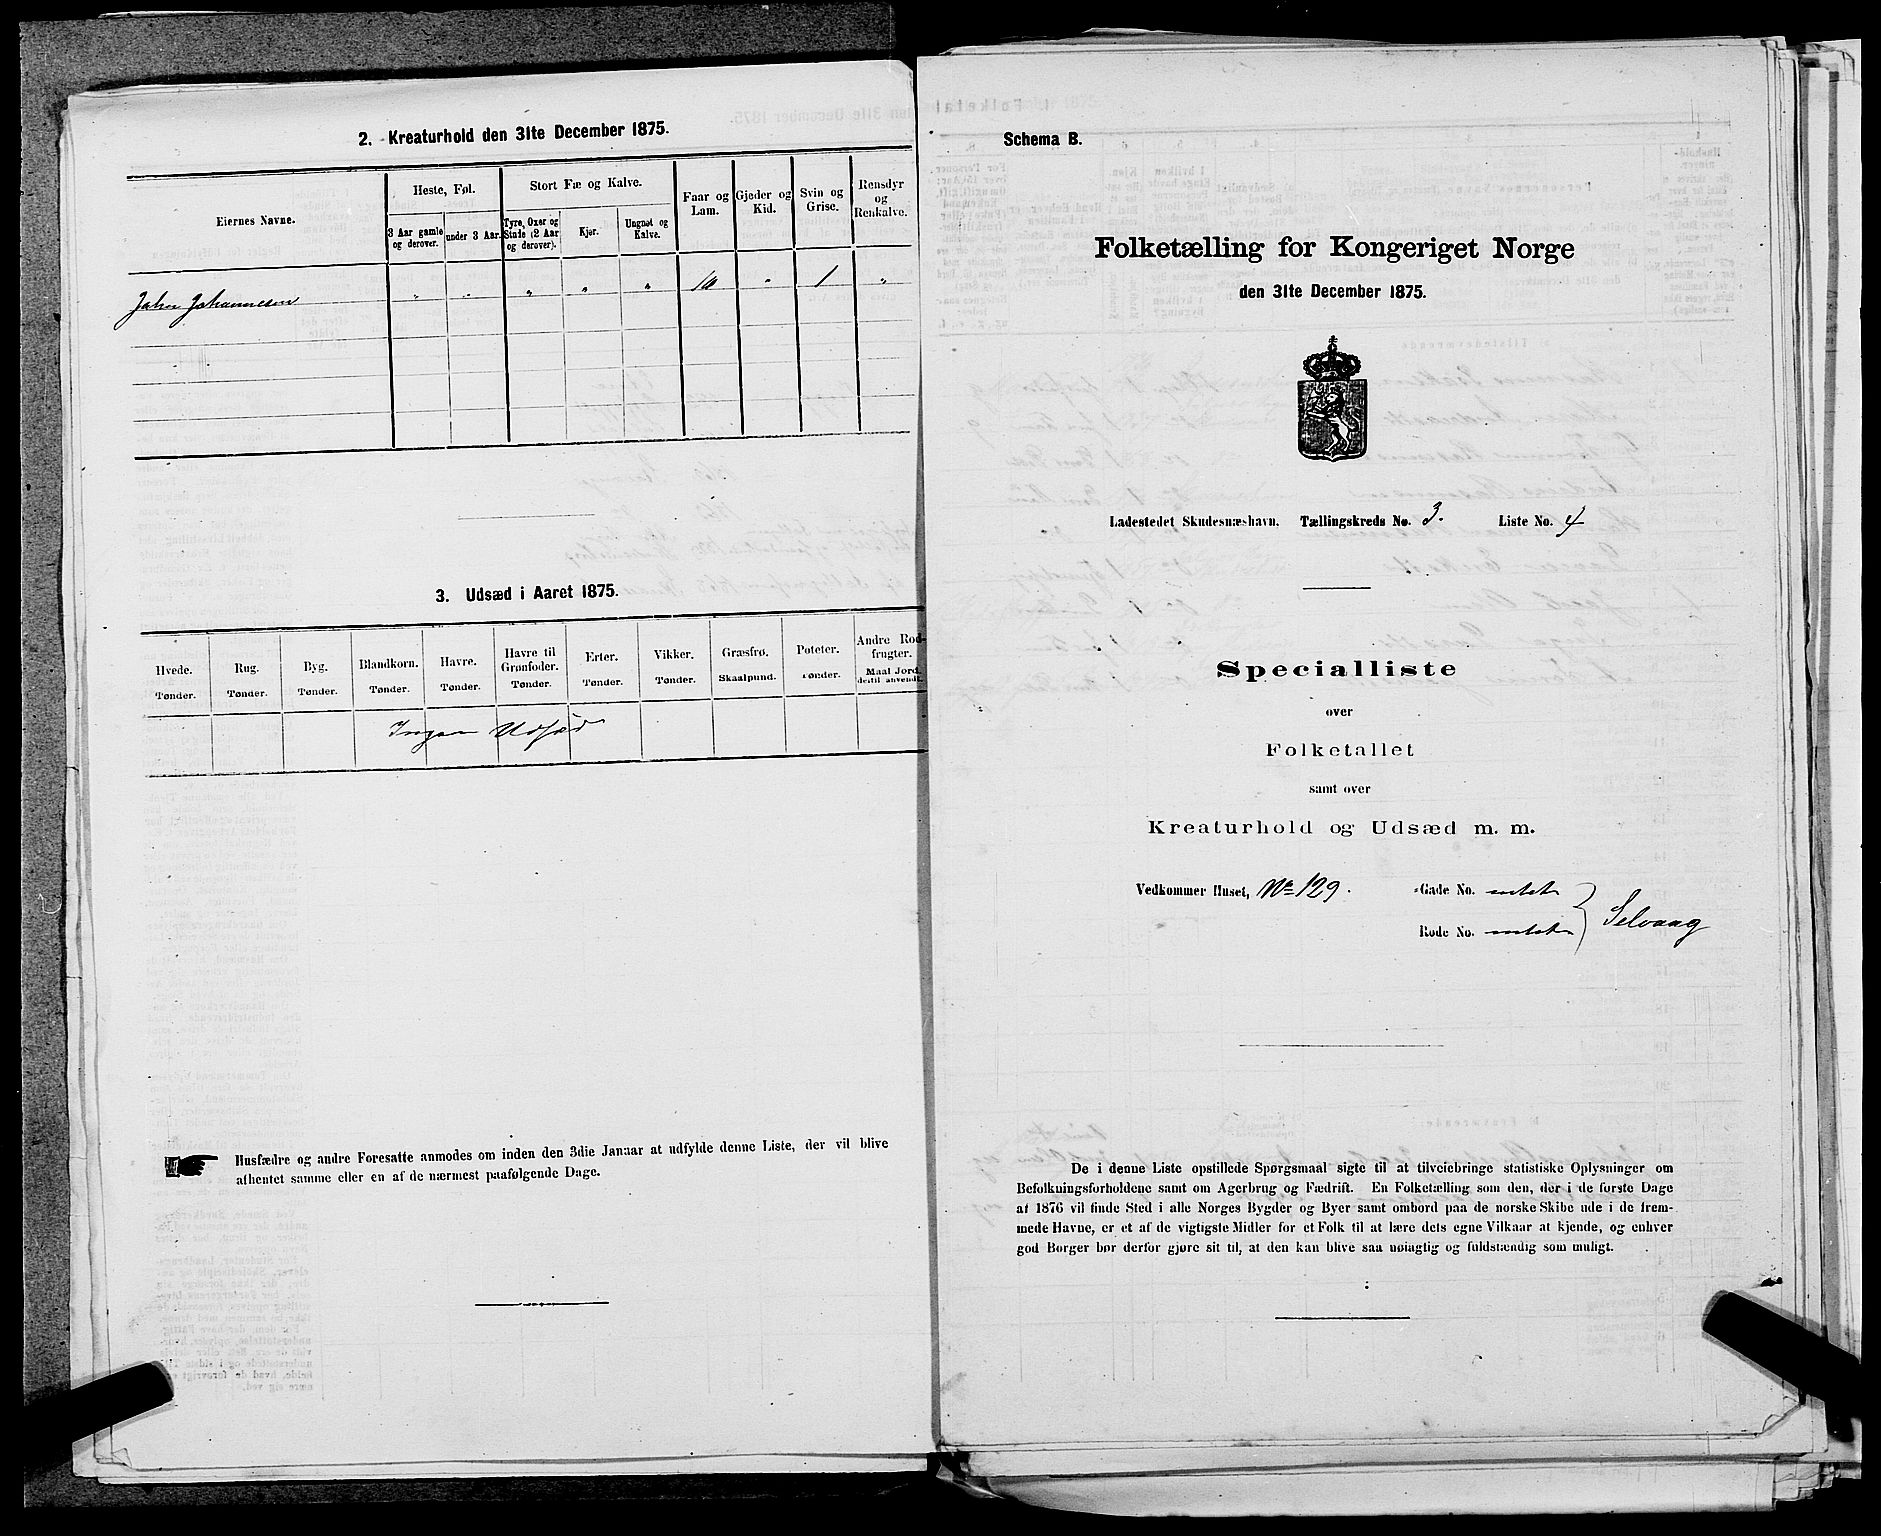 2. Kreaturhold den 31te December 1875.
Eiernes Navne.
Heste, Føl.
Stort Fæ og Kalve.
Faar og Lam.
Gjeder og Kid.
Svin og Grise.
Rensdyr og Renkalve.
3 Aar gamle og derover.
under 3 Aar.
Tyre, Oxer og Stude (2 Aar og derover).
Kjør.
Ungnøt og Kalve.
John Johannesen " " " " " " 1
3. Udsæd i Aaret 1875.
Hvede. Tønder.
Rug. Tønder.
Byg. Tønder.
Blandkorn. Tønder.
Havre. Tønder.
Havre til Grønfoder. Tønder.
Erter. Tønder.
Vikker. Tønder.
Græsfrø. Skaalpund.
Poteter. Tønder.
Andre Rodfrugter. Maal Jord dertil anvendt.
Ingen Udsæd
Husfædre og andre Foresatte anmodes om inden den 3die Januar at udfylde denne Liste, der vil blive
afhentet samme eller en af de nærmest paafølgende Dage.
Schema B.
Folketælling for Kongeriget Norge
den 31te December 1875.
Ladestedet Skudesnæshavn. Tællingskreds No. 3. Liste No. 4
Specialliste
over
Folketallet
samt over
Kreaturhold og Udsæd m. m.
Vedkommer Huset, No 129. Gade No. intet
Rode No. intet } Selvaag
De i denne Liste opstillede Spørgsmaal sigte til at tilveiebringe statistiske Oplysninger om
Befolkningsforholdene samt om Agerbrug og Fædrift. En Folketælling som den, der i de første Dage
af 1876 vil finde Sted i alle Norges Bygder og Byer samt ombord paa de norske Skibe ude i de frem-
mede Havne, er et af de vigtigste Midler for et Folk til at lære dets egne Vilkaar at kjende, og enhver
god Borger bør derfor gjøre sit til, at den kan blive saa nøiagtig og fuldstændig som muligt.